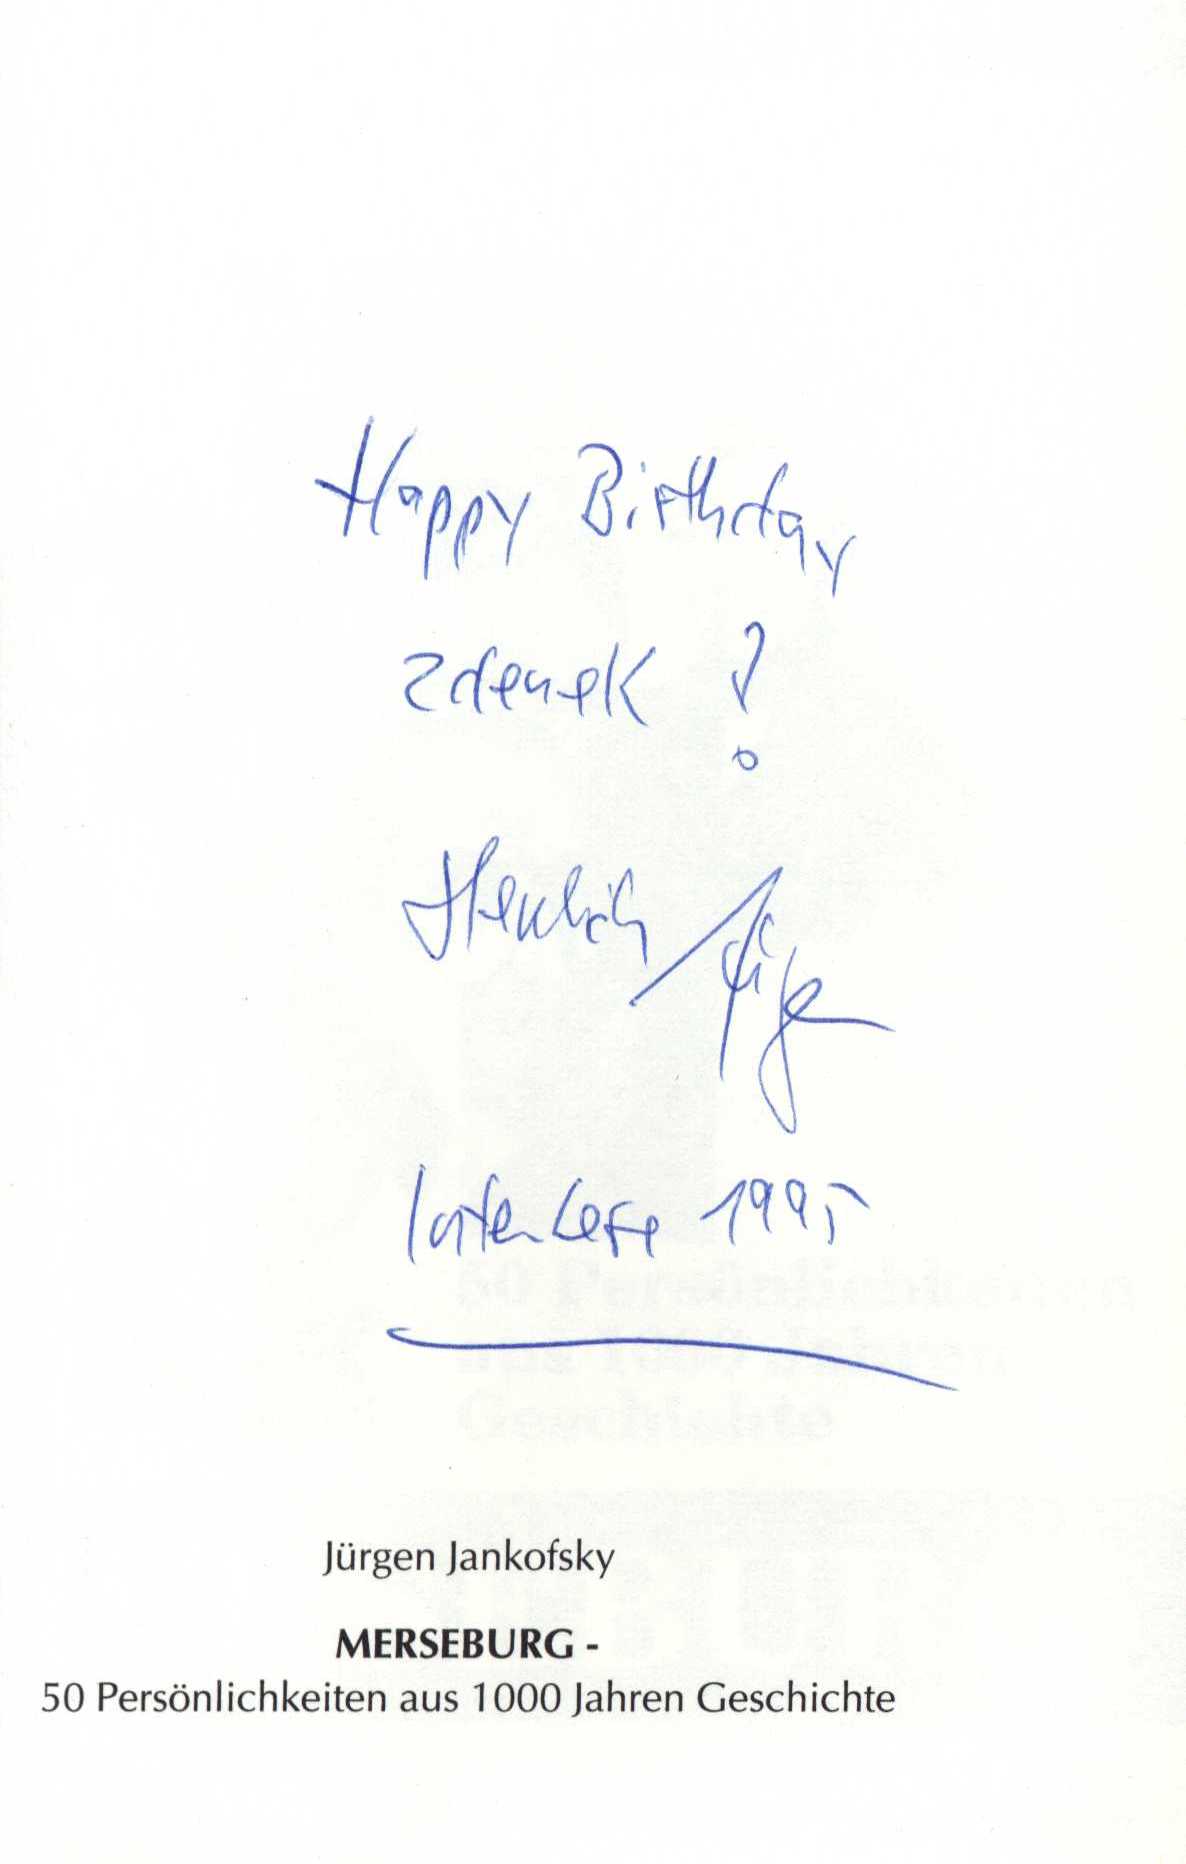 Happy Birthday
Zdenek !
Herzlich Jürgen
InterLese 1995
Jürgen Jankofsky
MERSEBURG -
50 Persönlichkeiten aus 1000 Jahren Geschichte